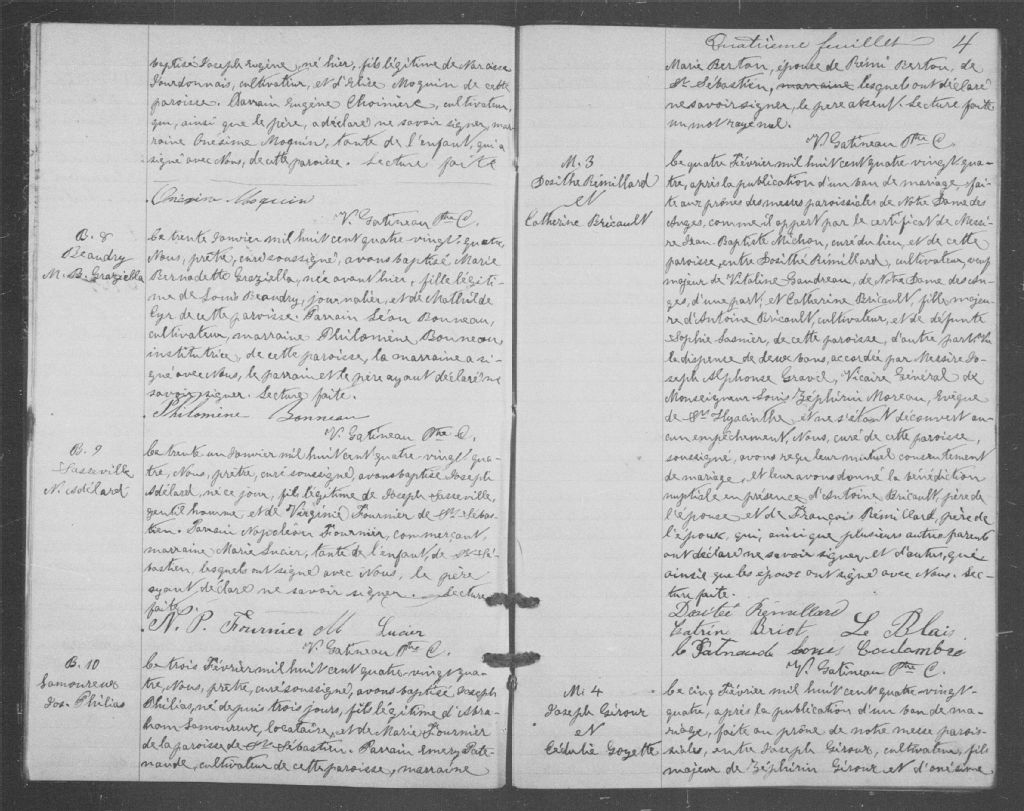 baptisé Joseph Eugène, né hier, fils légitime de Narcisse
Jourdonnais, cultivateur, et d'Elise Moquin de cette
paroisse. Parrain Eugène Choinière, cultivateur,
qui, ainsi que le père, a déclaré ne savoir signer, mar-
raine Onésime Moquin, tante de l'enfant, qui a
signé avec Nous, de cette paroisse. Lecture faite
Onésim Moquin
V. Gatineau Ptre C.
B. 8
Beaudry
M. B. Graziella
Le trente Janvier mil huit cent quatre-vingt-quatre,
Nous, prêtre, curé soussigné, avons baptisé Marie
Bernadette Graziella, née avant hier, fille légiti-
me de Louis Beaudry, journalier, et de Mathilde
Cyr de cette paroisse. Parrain Léon Bonneau,
cultivateur, marraine Philomène Bonneau
institutrice, de cette paroisse, la marraine a si-
gné avec Nous, le parrain et le père ayant déclaré ne
savoir signer. Lecture faite.
Philomène Bonneau
V. Gatineau Ptre C.
B. 9
Lasseville
N. Adélard
Le trente un Janvier mil huit cent quatre-vingt qua-
tre, Nous, prêtre, curé soussigné, avons baptisé Joseph
Adélard, né ce jour, fils légitime de Joseph Lasseville,
gentilhomme et de Virginie Fournier de St. Sébas-
tien. Parrain Napoléon Fournier, commerçant,
marraine Marie Lucier, tante de l'enfant de St. Sé-
bastien, lesquels ont signé avec Nous, le père
ayant déclaré ne savoir signer. Lecture
faite.
N. P. Fournier M Lucier
V. Gatineau Ptre C.
B. 10
Lamoureux
Jos. Philias
Le trois Février mil huit cent quatre-vingt qua-
tre, Nous, prêtre, curé soussigné, avons baptisé Joseph
Philias, né depuis trois jours, fils légitime d'Abra-
ham Lamoureux, locataire, et de Marie Fournier
de la paroisse de St. Sébastien. Parrain Emery Pate-
naude, cultivateur de cette paroisse, marraine
Quatrième feuillet 4
Marie Berton, épouse de Rémi Berton, de
St. Sébastien, marraine lesquels ont déclaré
ne savoir signer, le père absent. Lecture faite
un mot rayé nul.
V. Gatineau Ptre C.
M. 3
Dosithé Rémillard
et
Catherine Bricault
Le quatre Février mil huit cent quatre vingt qua-
tre, après la publication d'un ban de mariage, faite
aux prônes des messes paroissiales de Notre Dame des
Anges, comme il appert par le certificat de Messi-
re Jean-Baptiste Michon, curé du lieu, et de cette
paroisse, entre Dosithé Rémillard, cultivateur, veuf
majeur de Vitaline Gaudreau, de Notre Dame des An-
ges, d'une part, et Catherine Bricault, fille majeu-
re d'Antoine Bricault, cultivateur, et de défunte
Sophie Lasnier, de cette paroisse, d'autre part. Vu
la dispense de deux bans, accordée par Messire Jo-
seph Alphonse Gravel, Vicaire Général de
Monseigneur Louis Zéphirin Moreau, Evêque
de St. Hyacinthe, et ne s'étant découvert au-
cun empêchement, Nous, curé de cette paroisse,
soussigné, avons reçu leur mutuel consentement
de mariage, et leur avons donné la bénédiction
nuptiale en présence d'Antoine Bricault, père de
l'épouse et de François Rémillard, père de
l'époux, qui, ainsi que plusieurs autres parents
ont déclaré ne savoir signer, et d'autres, qui
ainsi que les époux ont signé avec Nous. Lec-
ture faite.
Rémillard
Catrin Briot Le Blais
Patnaude Louis Coulombe
V. Gatineau Ptre C.
M. 4
Joseph Giroux
et
Exédulie Goyette
Le cinq Février mil huit cent quatre-vingt-
quatre, après la publication d'un ban de ma-
riage, faite au prône de notre messe parois-
siale, entre Joseph Giroux, cultivateur, fils
majeur de Zéphirin Giroux et d'Onésime